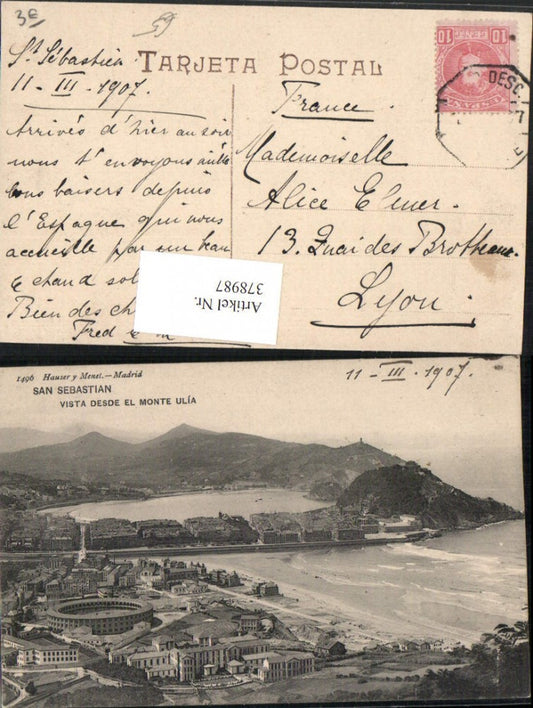 3€
59
TARJETA POSTAL
St Sébastien
11 - III - 1907.
Arrivés d'hier au soir
nous t'envoyons mille
bons baisers depuis
l'Espagne qui nous
accueille par un beau
& chaud sol
Bien des ch
Fred
France
Mademoiselle
Alice Elmer.
13. Quai des Brotteaux
Lyon.
10 10
DESC.
Artikel Nr.
378987
1496 Hauser y Menet.—Madrid
11 - III - 1907.
SAN SEBASTIAN
VISTA DESDE EL MONTE ULÍA